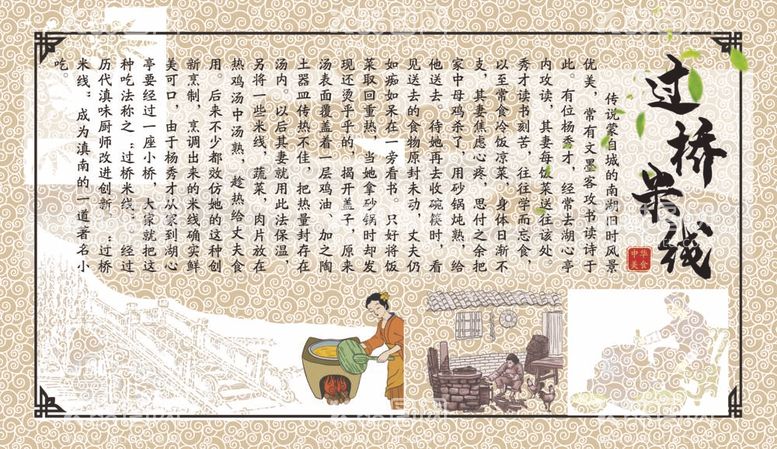 过桥米线
中华
美食
传说蒙自城的南湖旧时风景
优美，常有文墨客攻书读诗于
此。有位杨秀才，经常去湖心亭
内攻读，其妻每饭菜送往该处。
秀才读书刻苦，往往学而忘食，
以至常食冷饭凉菜，身体日渐不
支，其妻焦虑心疼，思付之余把
家中母鸡杀了，用砂锅炖熟，给
他送去。待她再去收碗筷时，看
见送去的食物原封未动，丈夫仍
如痴如呆在一旁看书。只好将饭
菜取回重热，当她拿砂锅时却发
现还烫乎乎的，揭开盖子，原来
汤表面覆盖着一层鸡油、加之陶
土器皿传热不佳，把热量封存在
汤内。以后其妻就用此法保温，
另将一些米线，蔬菜，肉片放在
热鸡汤中汤熟，趁热给丈夫食
用。后来不少都效仿她的这种创
新烹制，烹调出来的米线确实鲜
美可口，由于杨秀才从家到湖心
亭要经过一座小桥，大家就把这
种吃法称之“过桥米线”。经过
历代滇味厨师改进创新，“过桥
米线”成为滇南的一道著名小
吃。